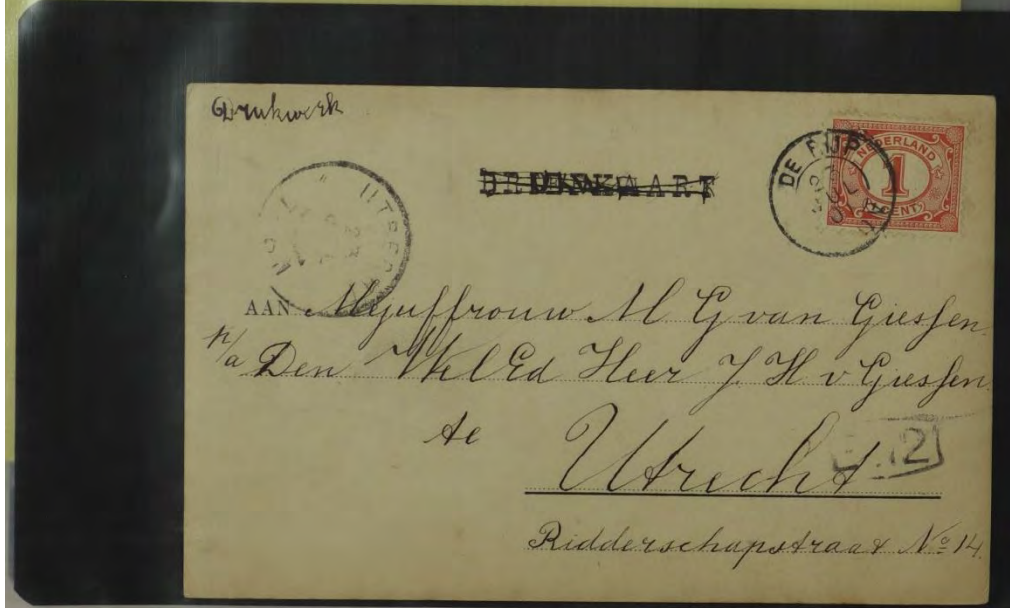 Drukwerk
DE RIJP
NEDERLAND
1
CENT
UTRECHT
AAN Mejuffrouw M G van Giessen
p/a Den WelEd Heer J. H v Giessen
te
Utrecht
12
Ridderschapstraat No 14.